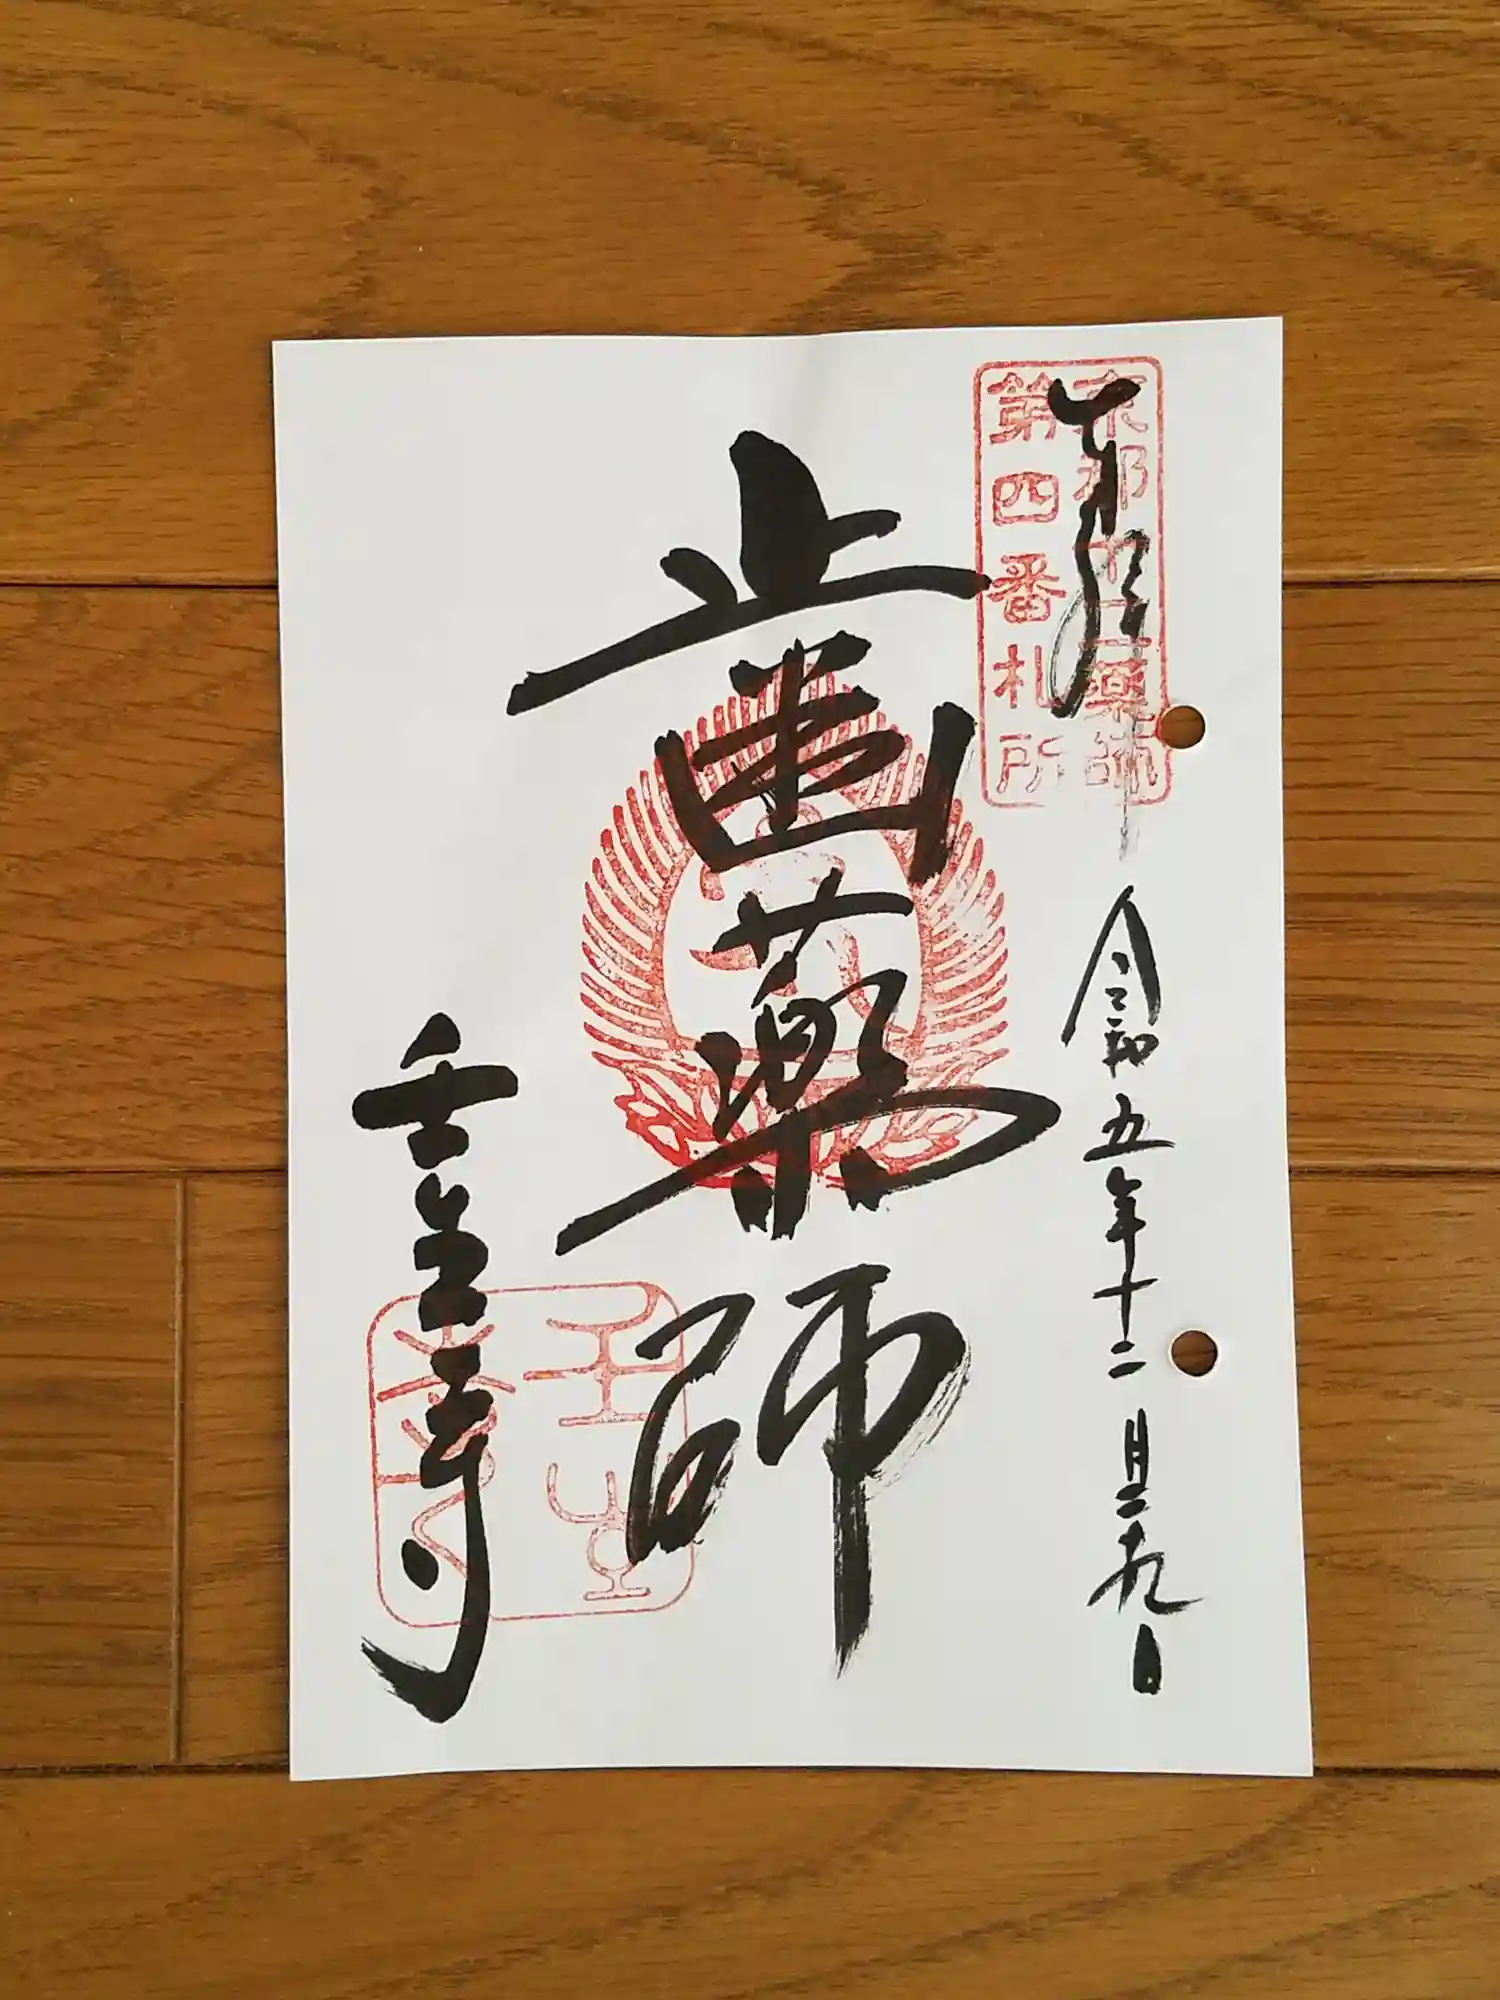 京都十二薬師
第四番札所
奉拝
令和五年十二月二九日
歯薬師
壬生寺
壬生寺印